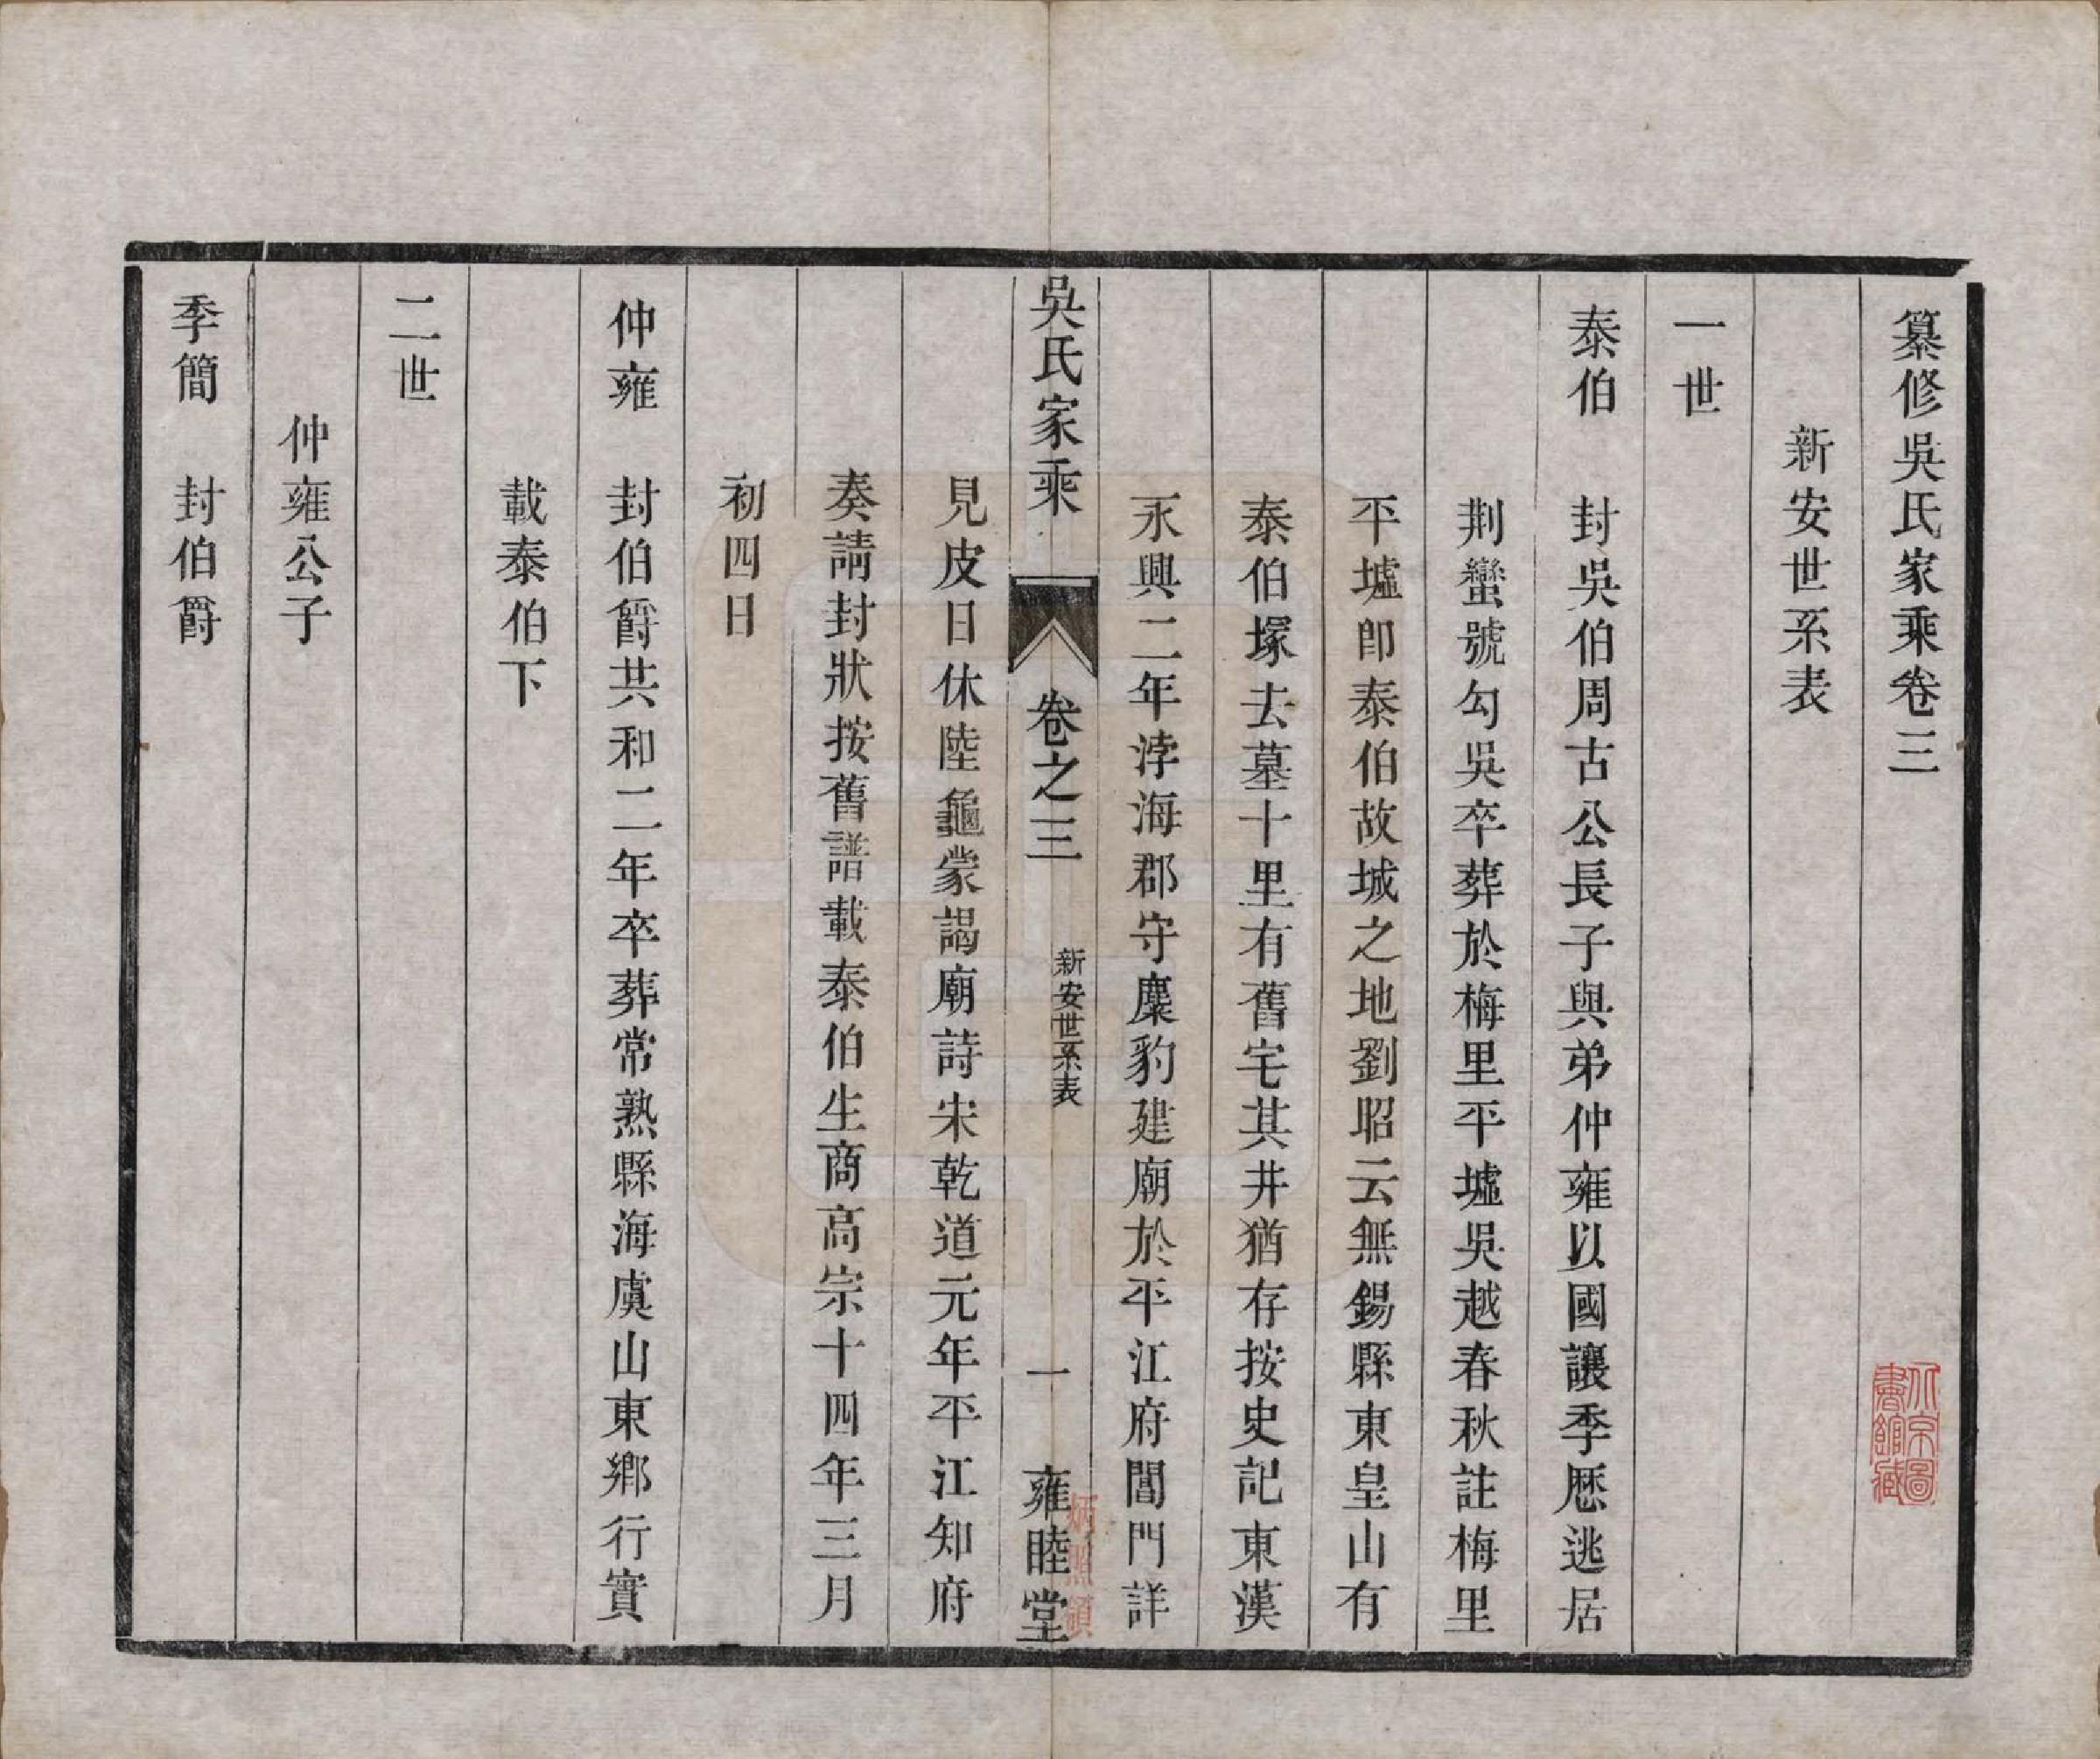 纂修吳氏家乘卷三
新安世系表
一世
泰伯 封吳伯周古公長子與弟仲雍以國讓季歷逃居
荆蠻號勾吳卒葬於梅里平墟吳越春秋註梅里
平墟卽泰伯故城之地劉昭云無錫縣東皇山有
泰伯塚去墓十里有舊宅其井猶存按史記東漢
永興二年浡海郡守麋豹建廟於平江府閶門詳
吳氏家乘 卷之三 新安世系表 一 雍睦堂
見皮日休陸龜蒙謁廟詩宋乾道元年平江知府
奏請封狀按舊譜載泰伯生商高宗十四年三月
初四日
仲雍 封伯爵共和二年卒葬常熟縣海虞山東鄉行實
載泰伯下
二世
仲雍公子
季簡 封伯爵
北京圖
書館藏
炳照領